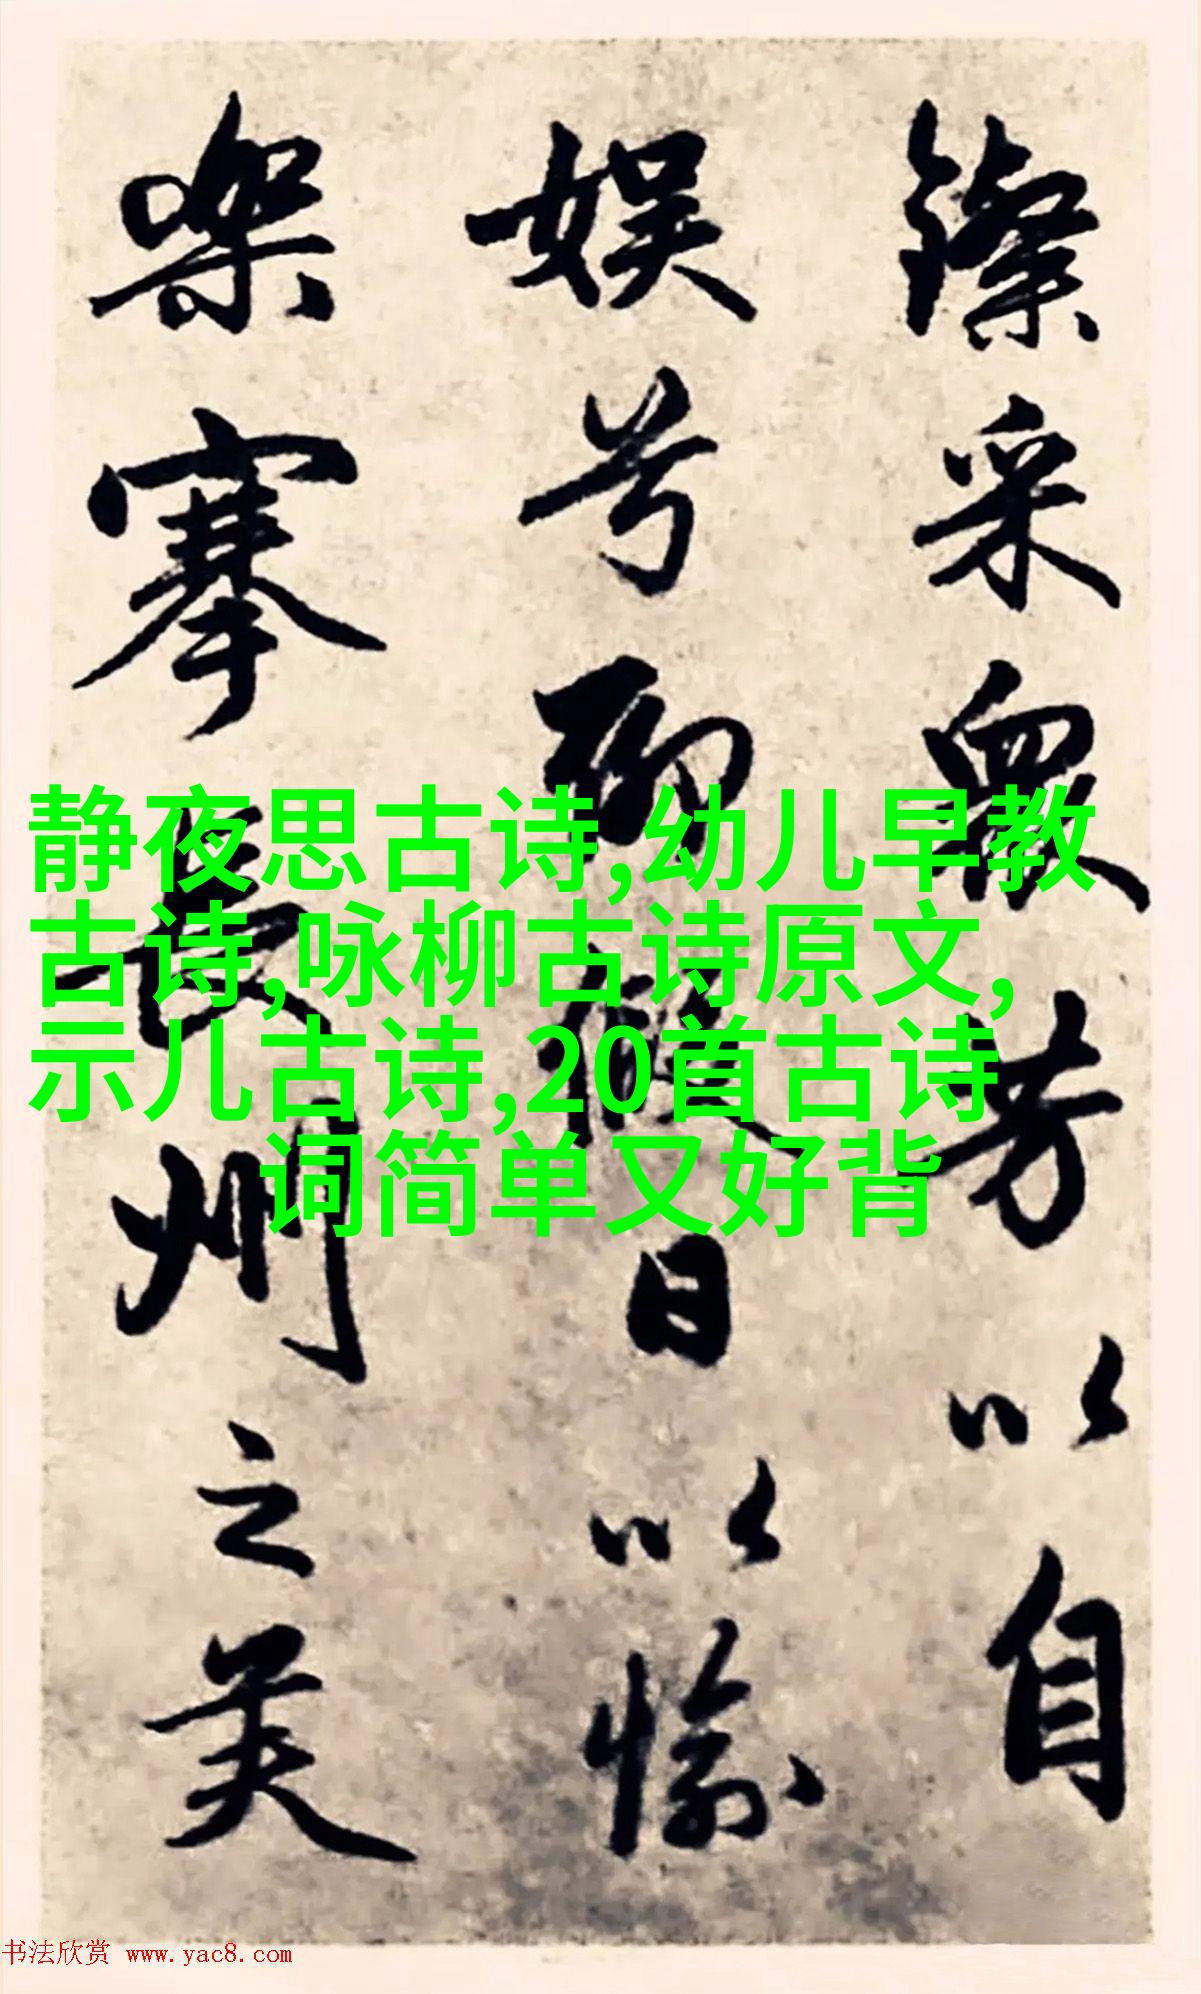 鑗采众芳以自
娱兮聊假日以愉
乐搴长州之美
静夜思古诗,幼儿早教
古诗,咏柳古诗原文,
示儿古诗,20首古诗
词简单又好背
书法欣赏 www.yac8.com